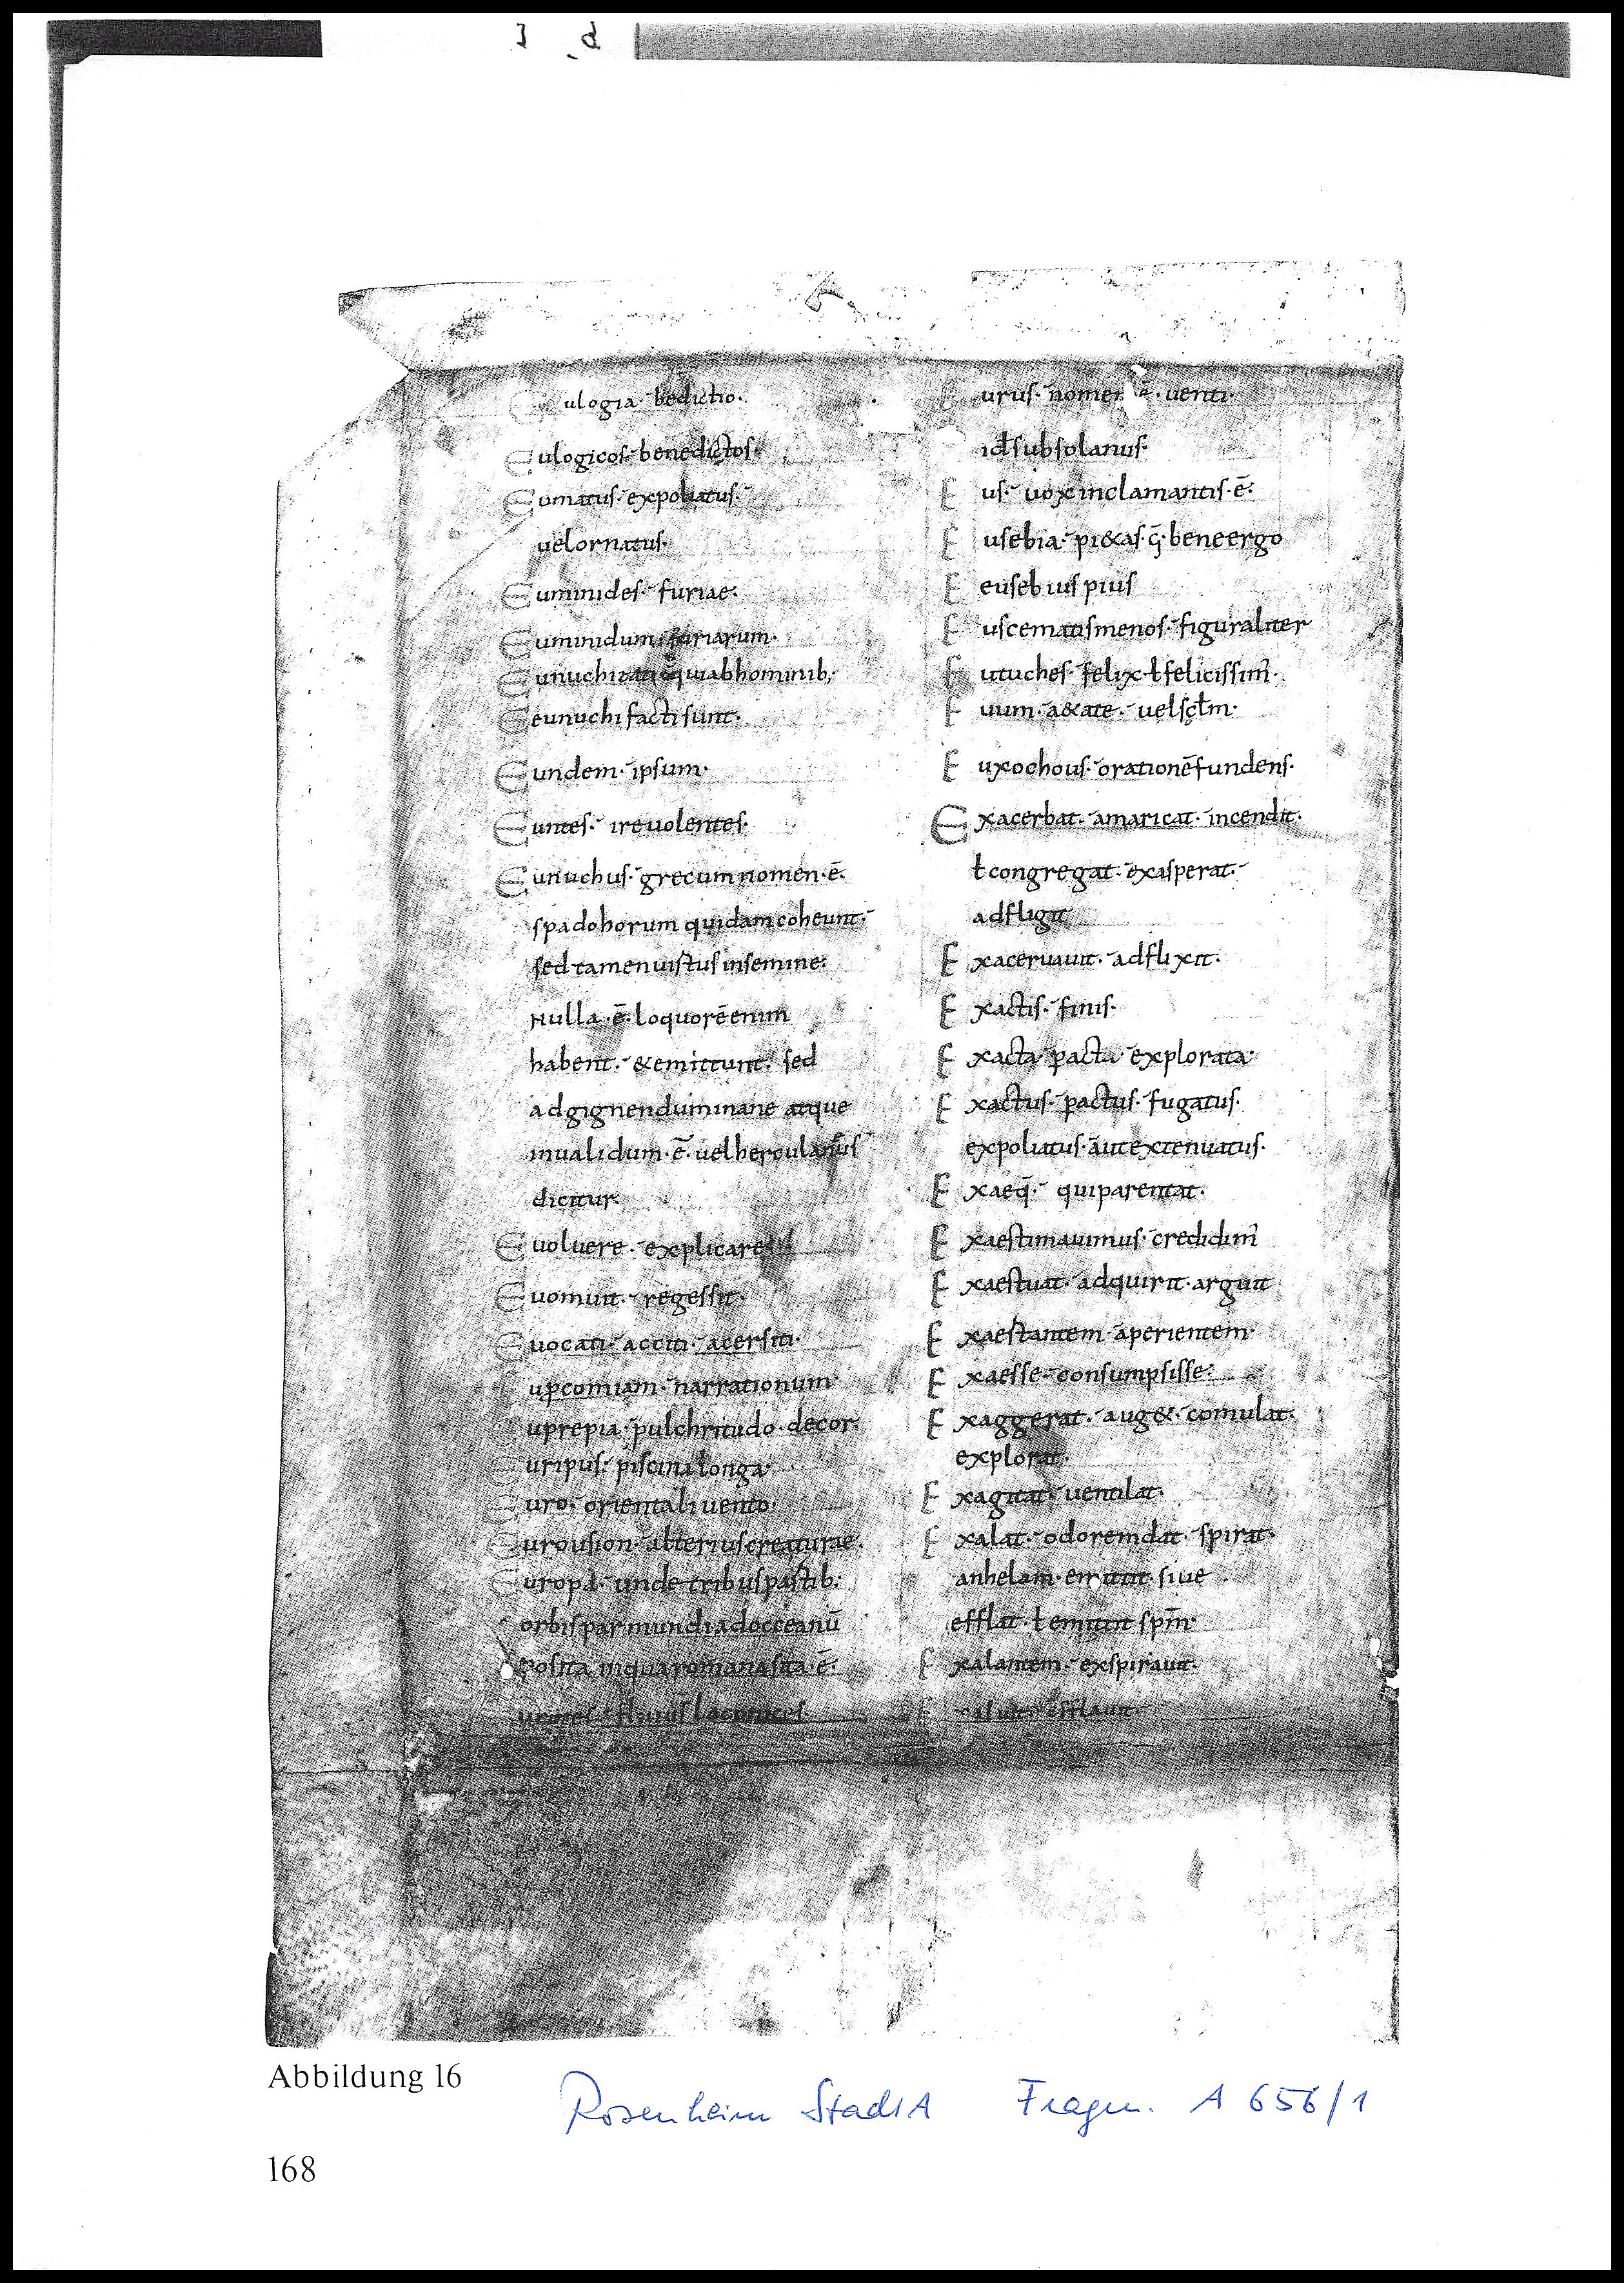 Eulogia· benedictio·
Eulogicos· benedictos·
Eumatus· expoliatus·
uelornatus·
Euminides· furiae·
Euminidum· furiarum·
Eunuchizati quiabhominib;
Eeunuchi facti sunt·
Eundem· ipsum·
Euntes· ireuolentes·
Eunuchus· grecumnomen·ē·
spadohorum quidamcoheunt·
sed tamenuistusinsemine·
Nulla·ē·loquorēenim
habent·&emittunt· sed
adgignenduminane atque
inualidum·ē·uelherculanus
dicitur·
Euoluere· explicare
Euomuit· regessit·
Euocati· acciti· acersiti·
upcomiam· narrationum·
Euprepia· pulchritudo· decor·
Euripus· piscina longa·
Euro· orientaliuento·
Eurousion· alteriuscreaturae·
Europa· unde tribuspartib;
orbispar mundiadocceanū
posita inquaromanasita·ē·
fluuius
Eurus· nomen ē·uenti·
id ł subsolanus·
Eus· uox inclamantis·ē·
Eusebia· pi&as· beneergo
E eusebius pius
Euscematismenos· figuraliter
Eutuches· felix· ł felicissim̄·
Euum· a&ate· uelsc̄łm·
Euxochous· orationēfundens·
Exacerbat· amaricat· incendit·
ł congregat· exasperat·
adfligit
Exaceruauit· adflixit·
Exactis· finis·
Exacta· p̱acta· explorata·
Exactus· p̱actus· fugatus·
expoliatus· autextenuatus·
Exaeq̄· quiparentat·
Exaestimauimus· credidim̄
Exaestuat· adquirit· arguit
Exaestantem· aperientem·
Exaesse· consumpsisse·
Exaggerat· aug&· comulat·
explorat·
Exagitat· uentilat·
Exalat· odoremdat· spirat·
anhelam· siue
efflat· ł emittit spm̄·
Exalantem· exspirauit·
efflauit·
Abbildung 16
Rosenheim StadtA Fragm. A 656/1
168